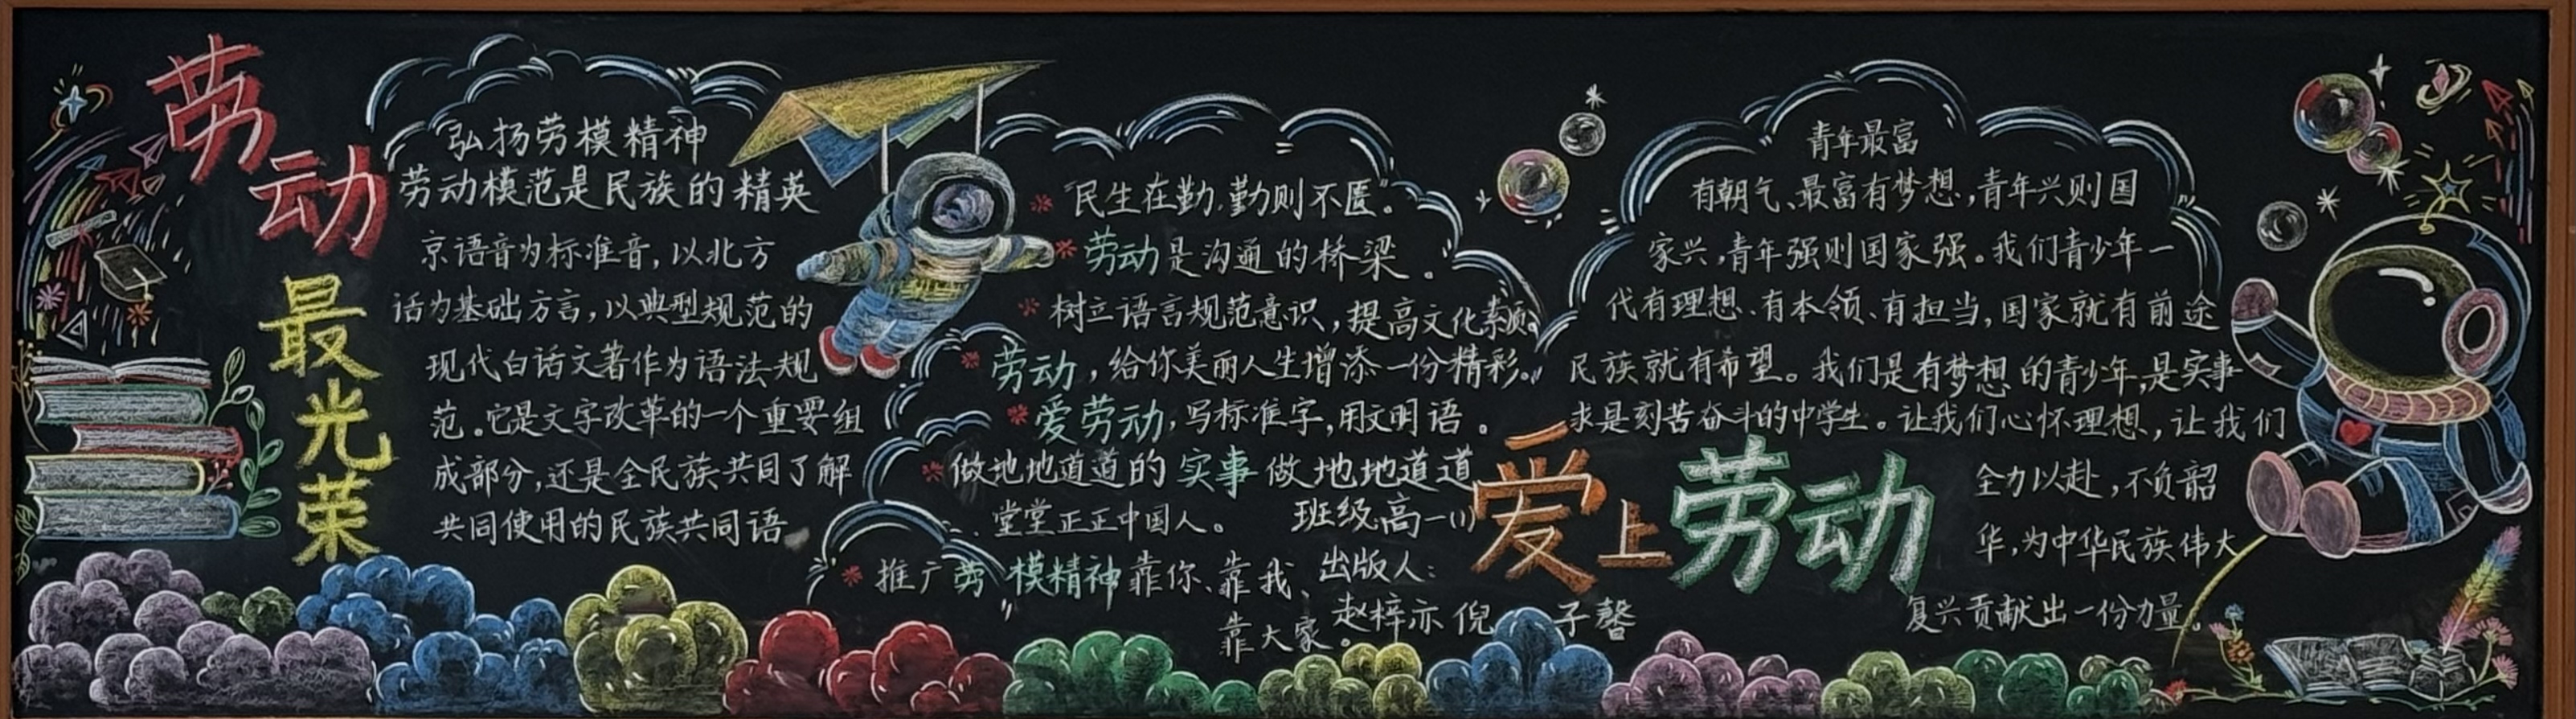 劳动
最光荣
弘扬劳模精神
劳动模范是民族的精英
京语音为标准音,以北方
话为基础方言,以典型规范的
现代白话文著作为语法规
范。它是文字改革的一个重要组
成部分,还是全民族共同了解
共同使用的民族共同语
“民生在勤,勤则不匮”。
劳动是沟通的桥梁。
树立语言规范意识,提高文化素质。
劳动,给你美丽人生增添一份精彩。
爱劳动,写标准字,用文明语。
做地地道道的实事 做地地道道
堂堂正正中国人。
推广劳模精神靠你、靠我、
靠大家。
班级:高一(1)
出版人:
赵梓亦 倪子馨
爱上劳动
青年最富
有朝气、最富有梦想,青年兴则国
家兴,青年强则国家强。我们青少年一
代有理想、有本领、有担当,国家就有前途
民族就有希望。我们是有梦想的青少年,是实事
求是刻苦奋斗的中学生。让我们心怀理想,让我们
全力以赴,不负韶
华,为中华民族伟大
复兴贡献出一份力量。